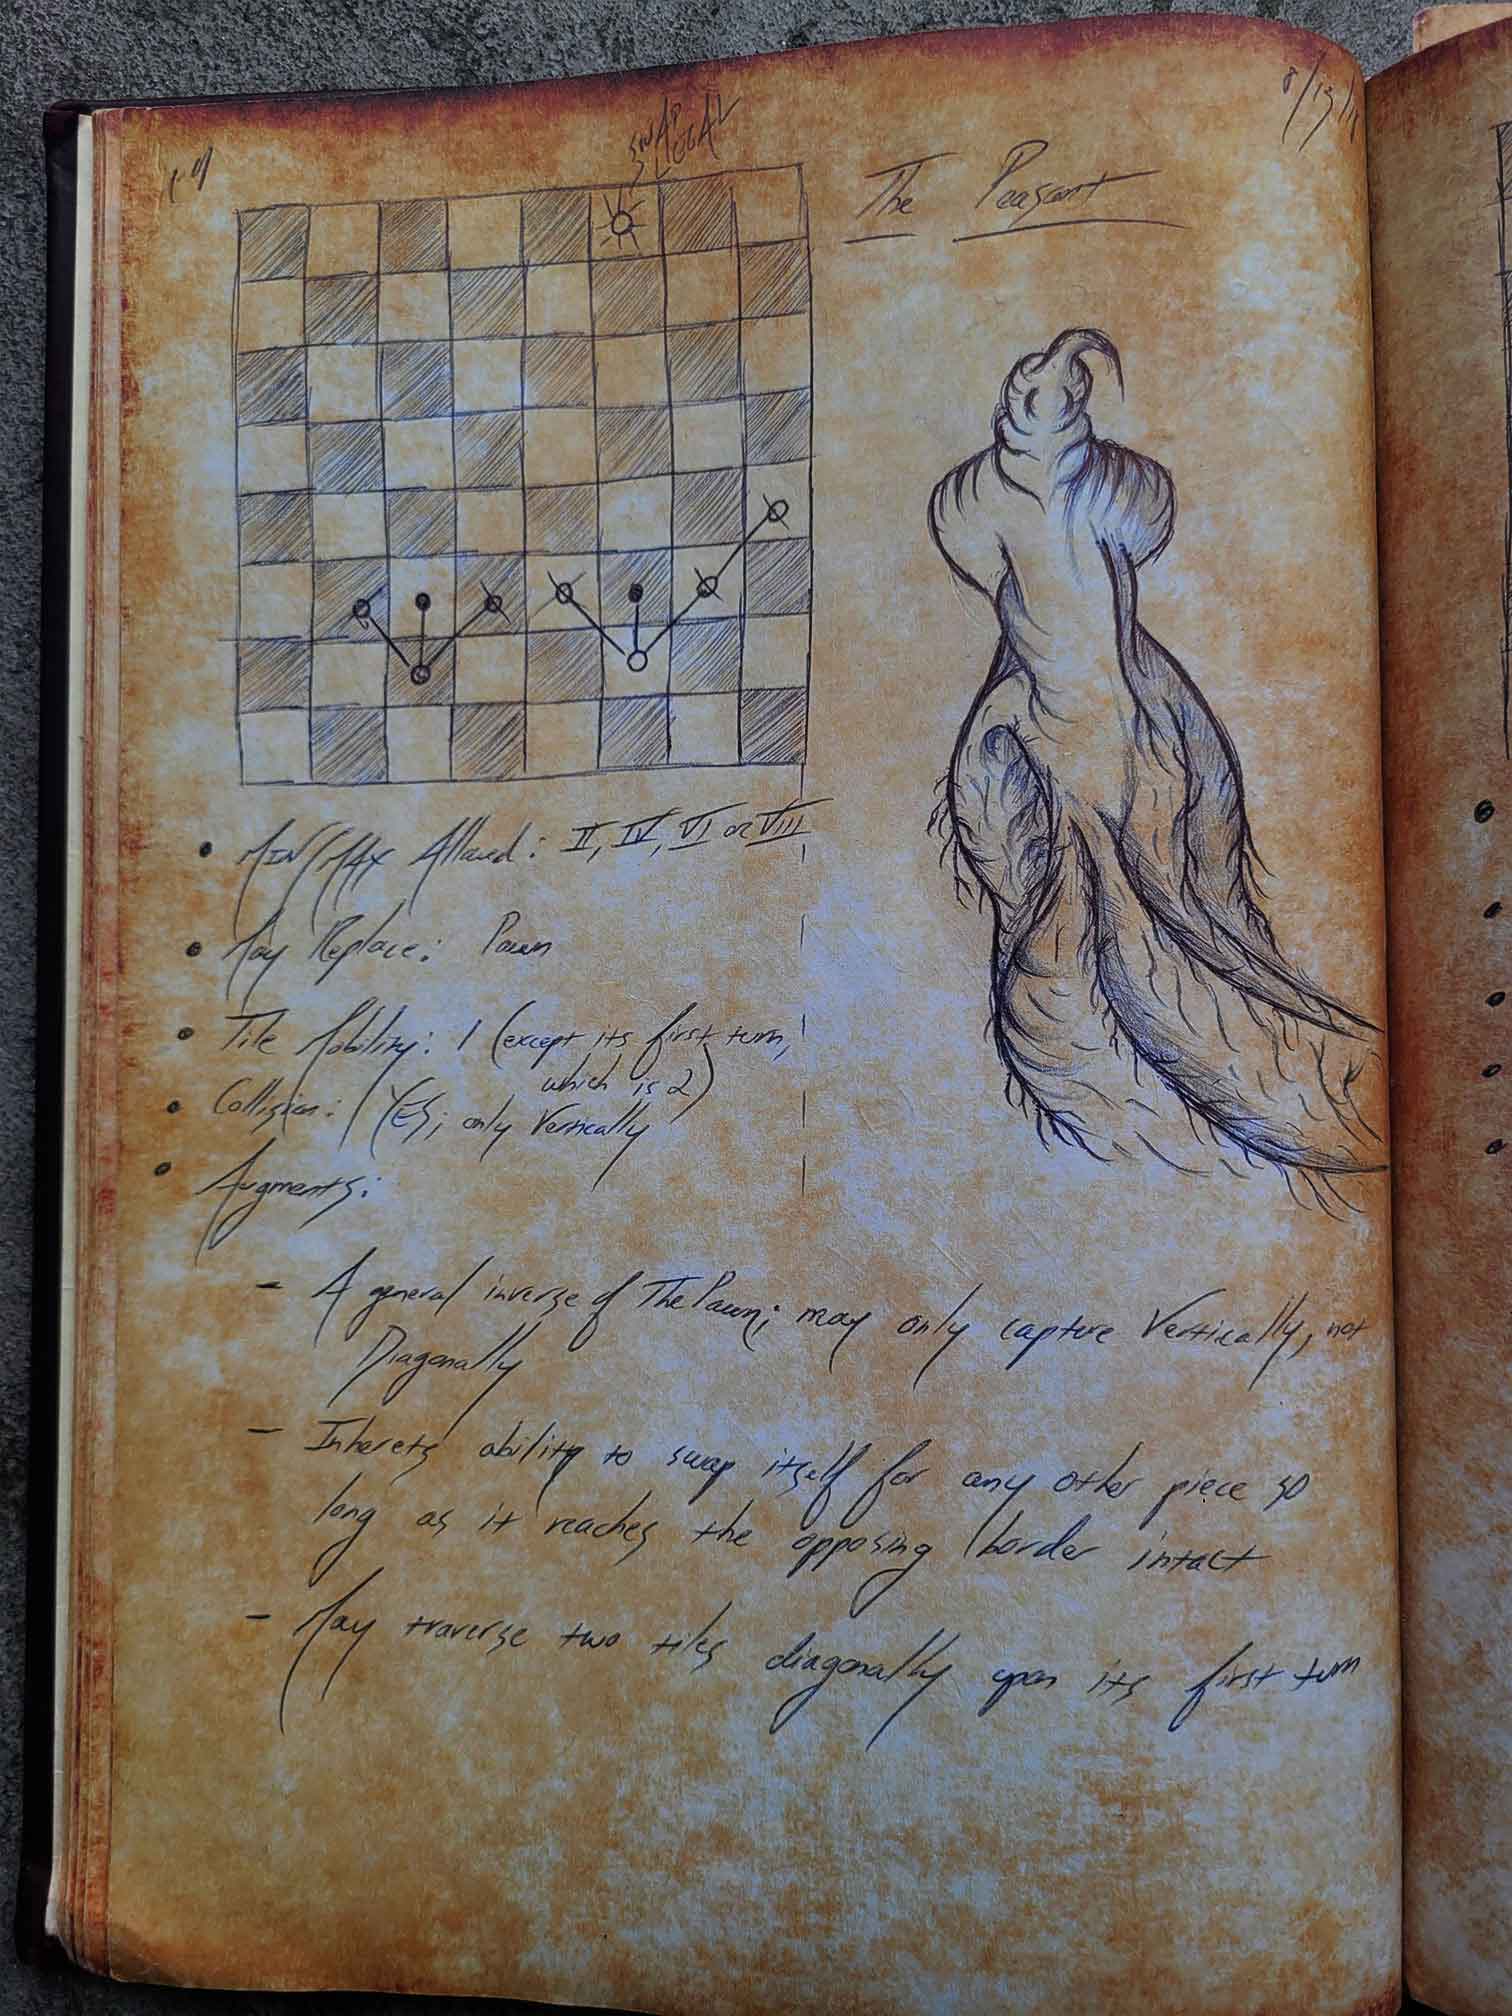 SWAP
LEGAL
The Peasant
• MIN/MAX Allowed: II, IV, VI or VIII
• May Replace: Pawn
• Tile Mobility: 1 (except its first turn,
which is 2)
• Collision: YES; only Vertically
• Augments:
- A general inverse of The Pawn; may only capture Vertically, not
Diagonally
- Inherets ability to swap itself for any other piece so
long as it reaches the opposing border intact
- May traverse two tiles diagonally upon its first turn